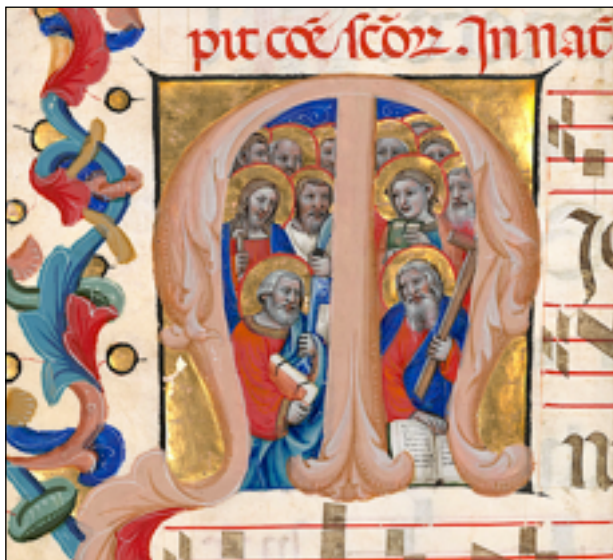 pit cōe scōꝝ. In nat
M